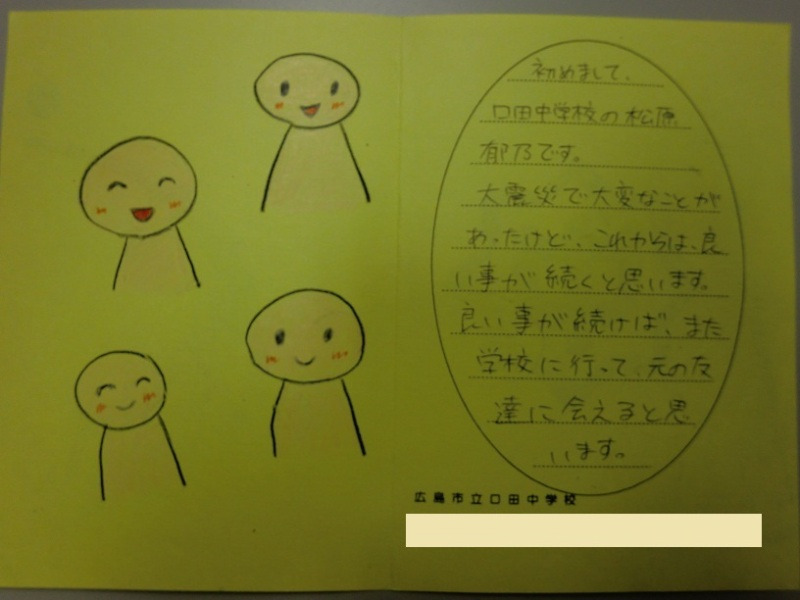 初めまして、
口田中学校の松原
郁乃です。
大震災で大変なことが
あったけど、これからは、良
い事が続くと思います。
良い事が続けば、また
学校に行って、元の友
達に会えると思
います。
広島市立口田中学校